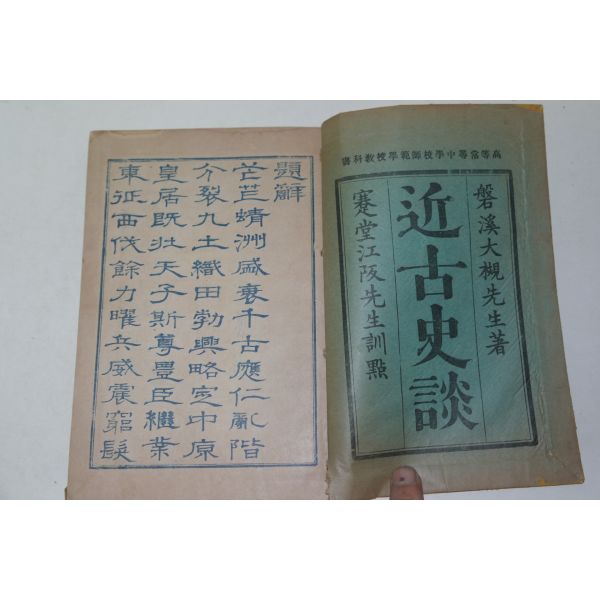 高等尋常中學校師範學校教科書
磐溪大槻先生著
近古史談
蹇堂江阪先生訓點
題辭
芒芒蜻洲盛衰千古應仁亂階
分裂九土織田勃興略定中原
皇居既壯天子斯尊豊臣繼業
東征西伐餘力曜兵威震窮髮